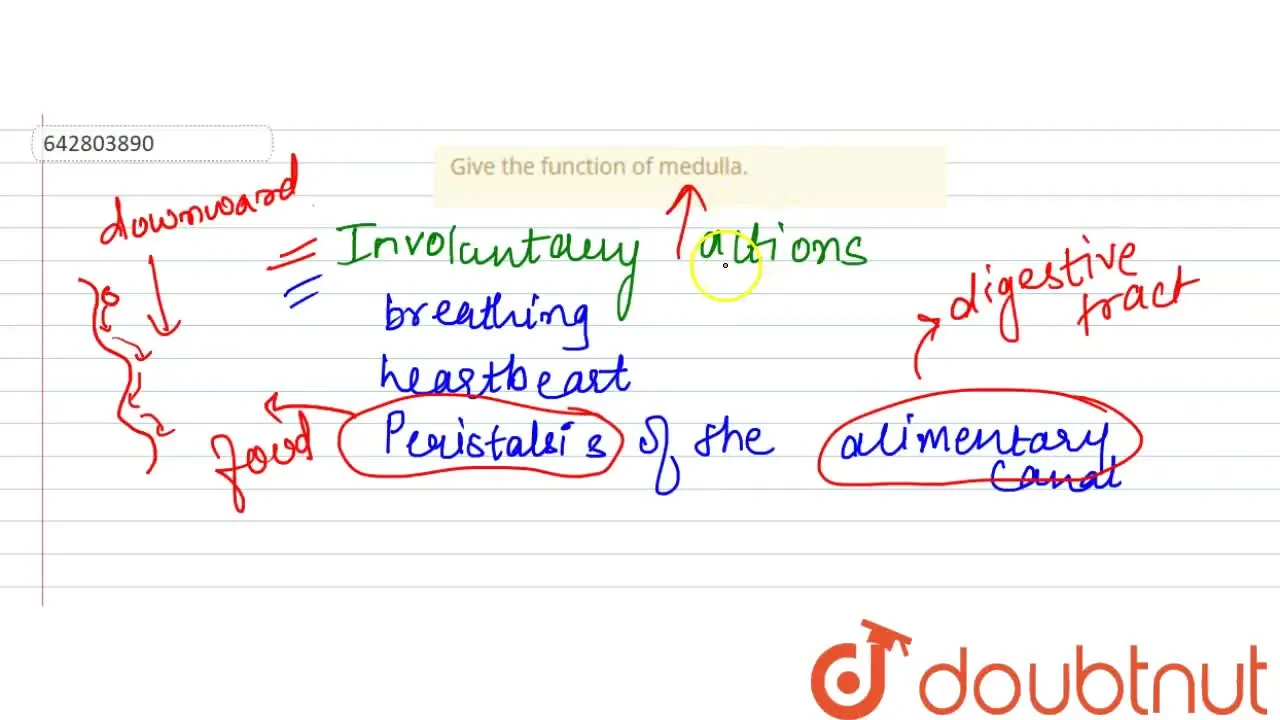 642803890
Give the function of medulla.
downward
= Involuntary actions
= breathing
heartbeart
Peristalsis of the alimentary
canal
food
digestive
tract
doubtnut